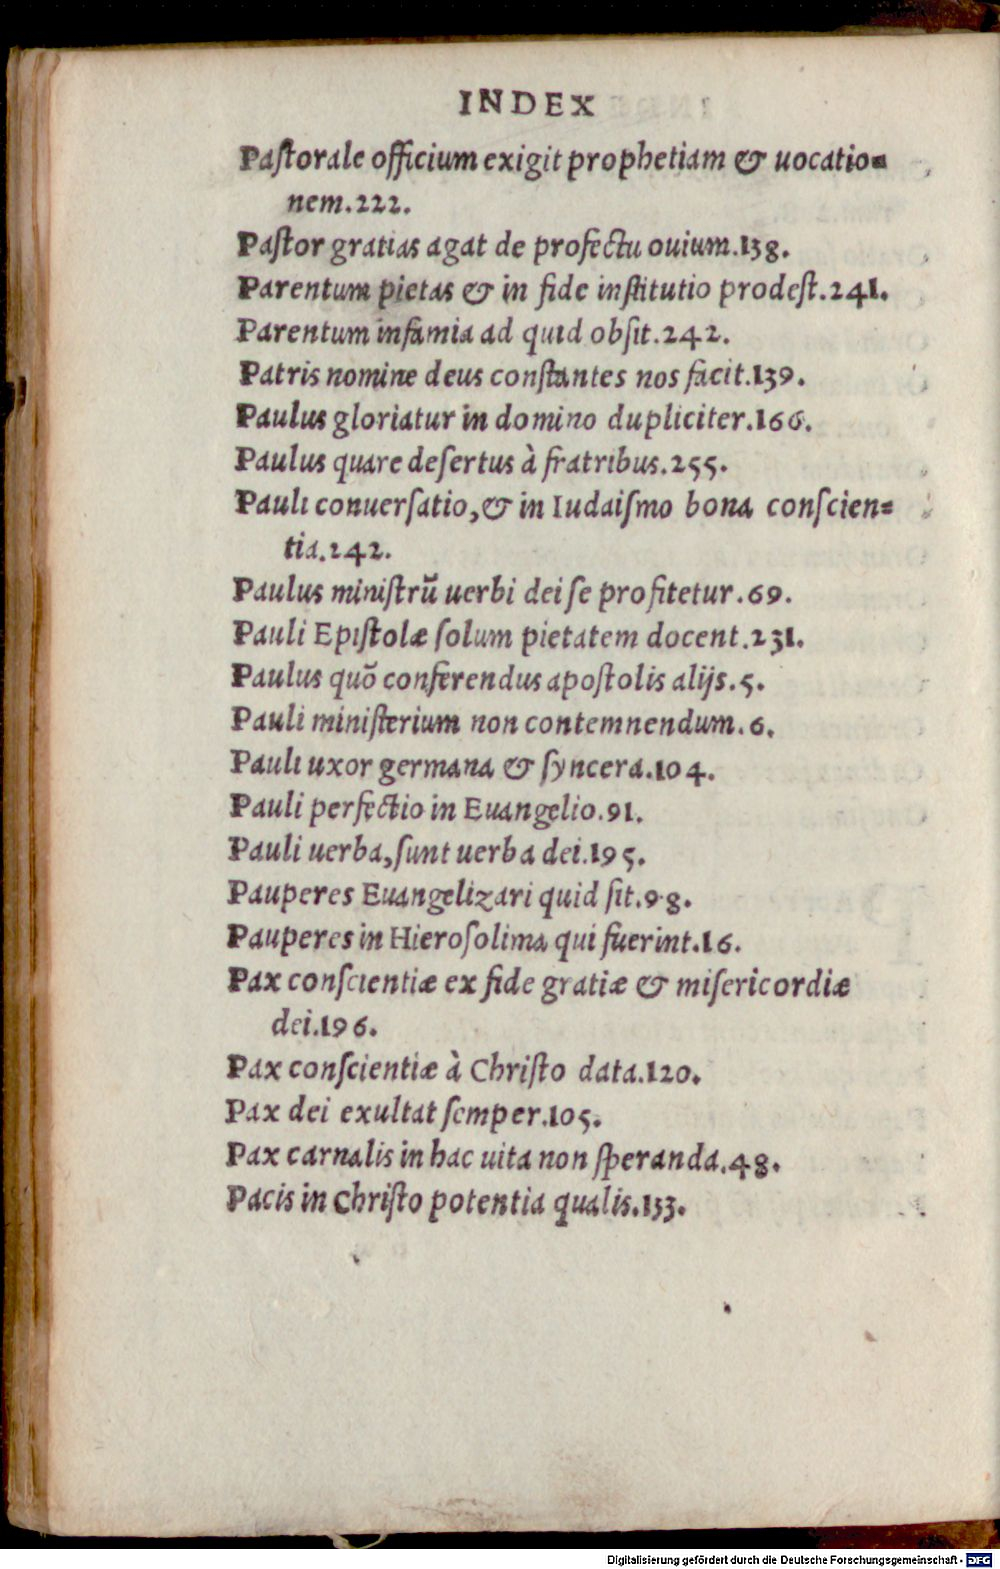 INDEX
Paſtorale officium exigit prophetiam & uocatio=
nem.222.
Paſtor gratias agat de profectu ouium.138.
Parentum pietas & in fide inſtitutio prodeſt.241.
Parentum infamia ad quid obſit.242.
Patris nomine deus conſtantes nos facit.139.
Paulus gloriatur in domino dupliciter.166.
Paulus quare deſertus à fratribus.255.
Pauli conuerſatio,& in Iudaiſmo bona conſcien=
tia.242.
Paulus miniſtrū uerbi dei ſe profitetur.69.
Pauli Epiſtolæ ſolum pietatem docent.231.
Paulus quō conferendus apoſtolis alijs.5.
Pauli miniſterium non contemnendum.6.
Pauli uxor germana & ſyncera.104.
Pauli perfectio in Euangelio.91.
Pauli uerba,ſunt uerba dei.195.
Pauperes Euangelizari quid ſit.98.
Pauperes in Hieroſolima qui fuerint.16.
Pax conſcientiæ ex fide gratiæ & miſericordiæ
dei.196.
Pax conſcientiæ à Chriſto data.120.
Pax dei exultat ſemper.105.
Pax carnalis in hac uita non ſperanda.48.
Pacis in Chriſto potentia qualis.153.
Digitalisierung gefördert durch die Deutsche Forschungsgemeinschaft - DFG